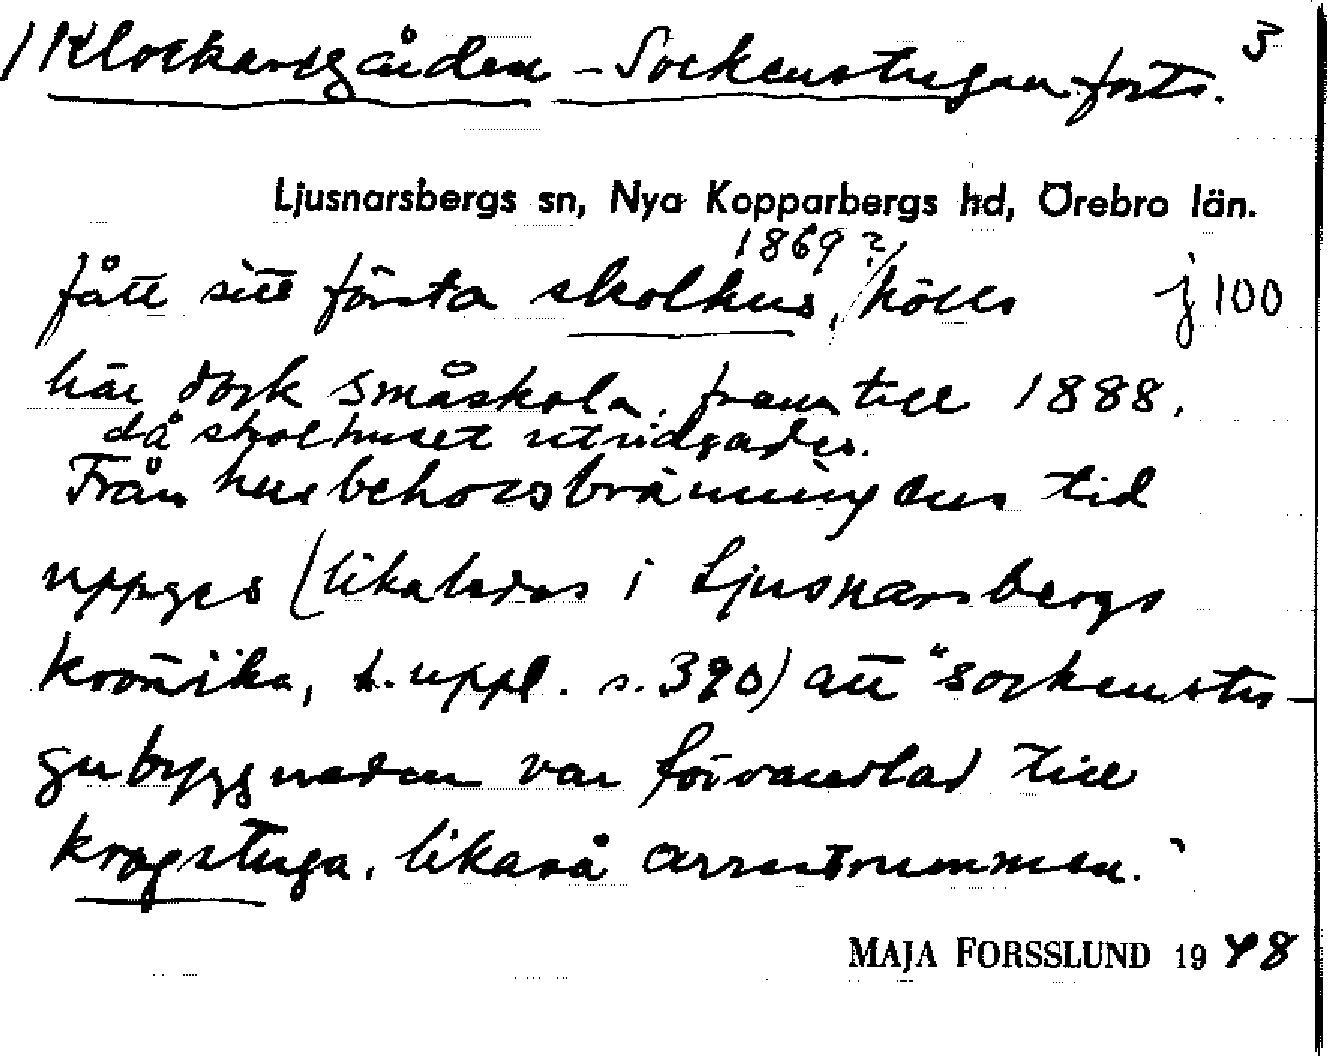 /Klockargården - Sockenstugan. forts. 3
Ljusnarsbergs sn, Nya Kopparbergs hd, Örebro län.
1869 ?/
fått sitt första skolhus, hölls j 100
här dock småskola. fram till 1888,
då skolhuset utvidgades.
Från husbehovsbränningens tid
uppges (likaledes i Ljusnarsbergs
krönika, 1. uppl. s. 390) att "sockenstu-
gubyggnaden var förvandlad till
krogstuga, likaså arrestrummen."
MAJA FORSSLUND 1948